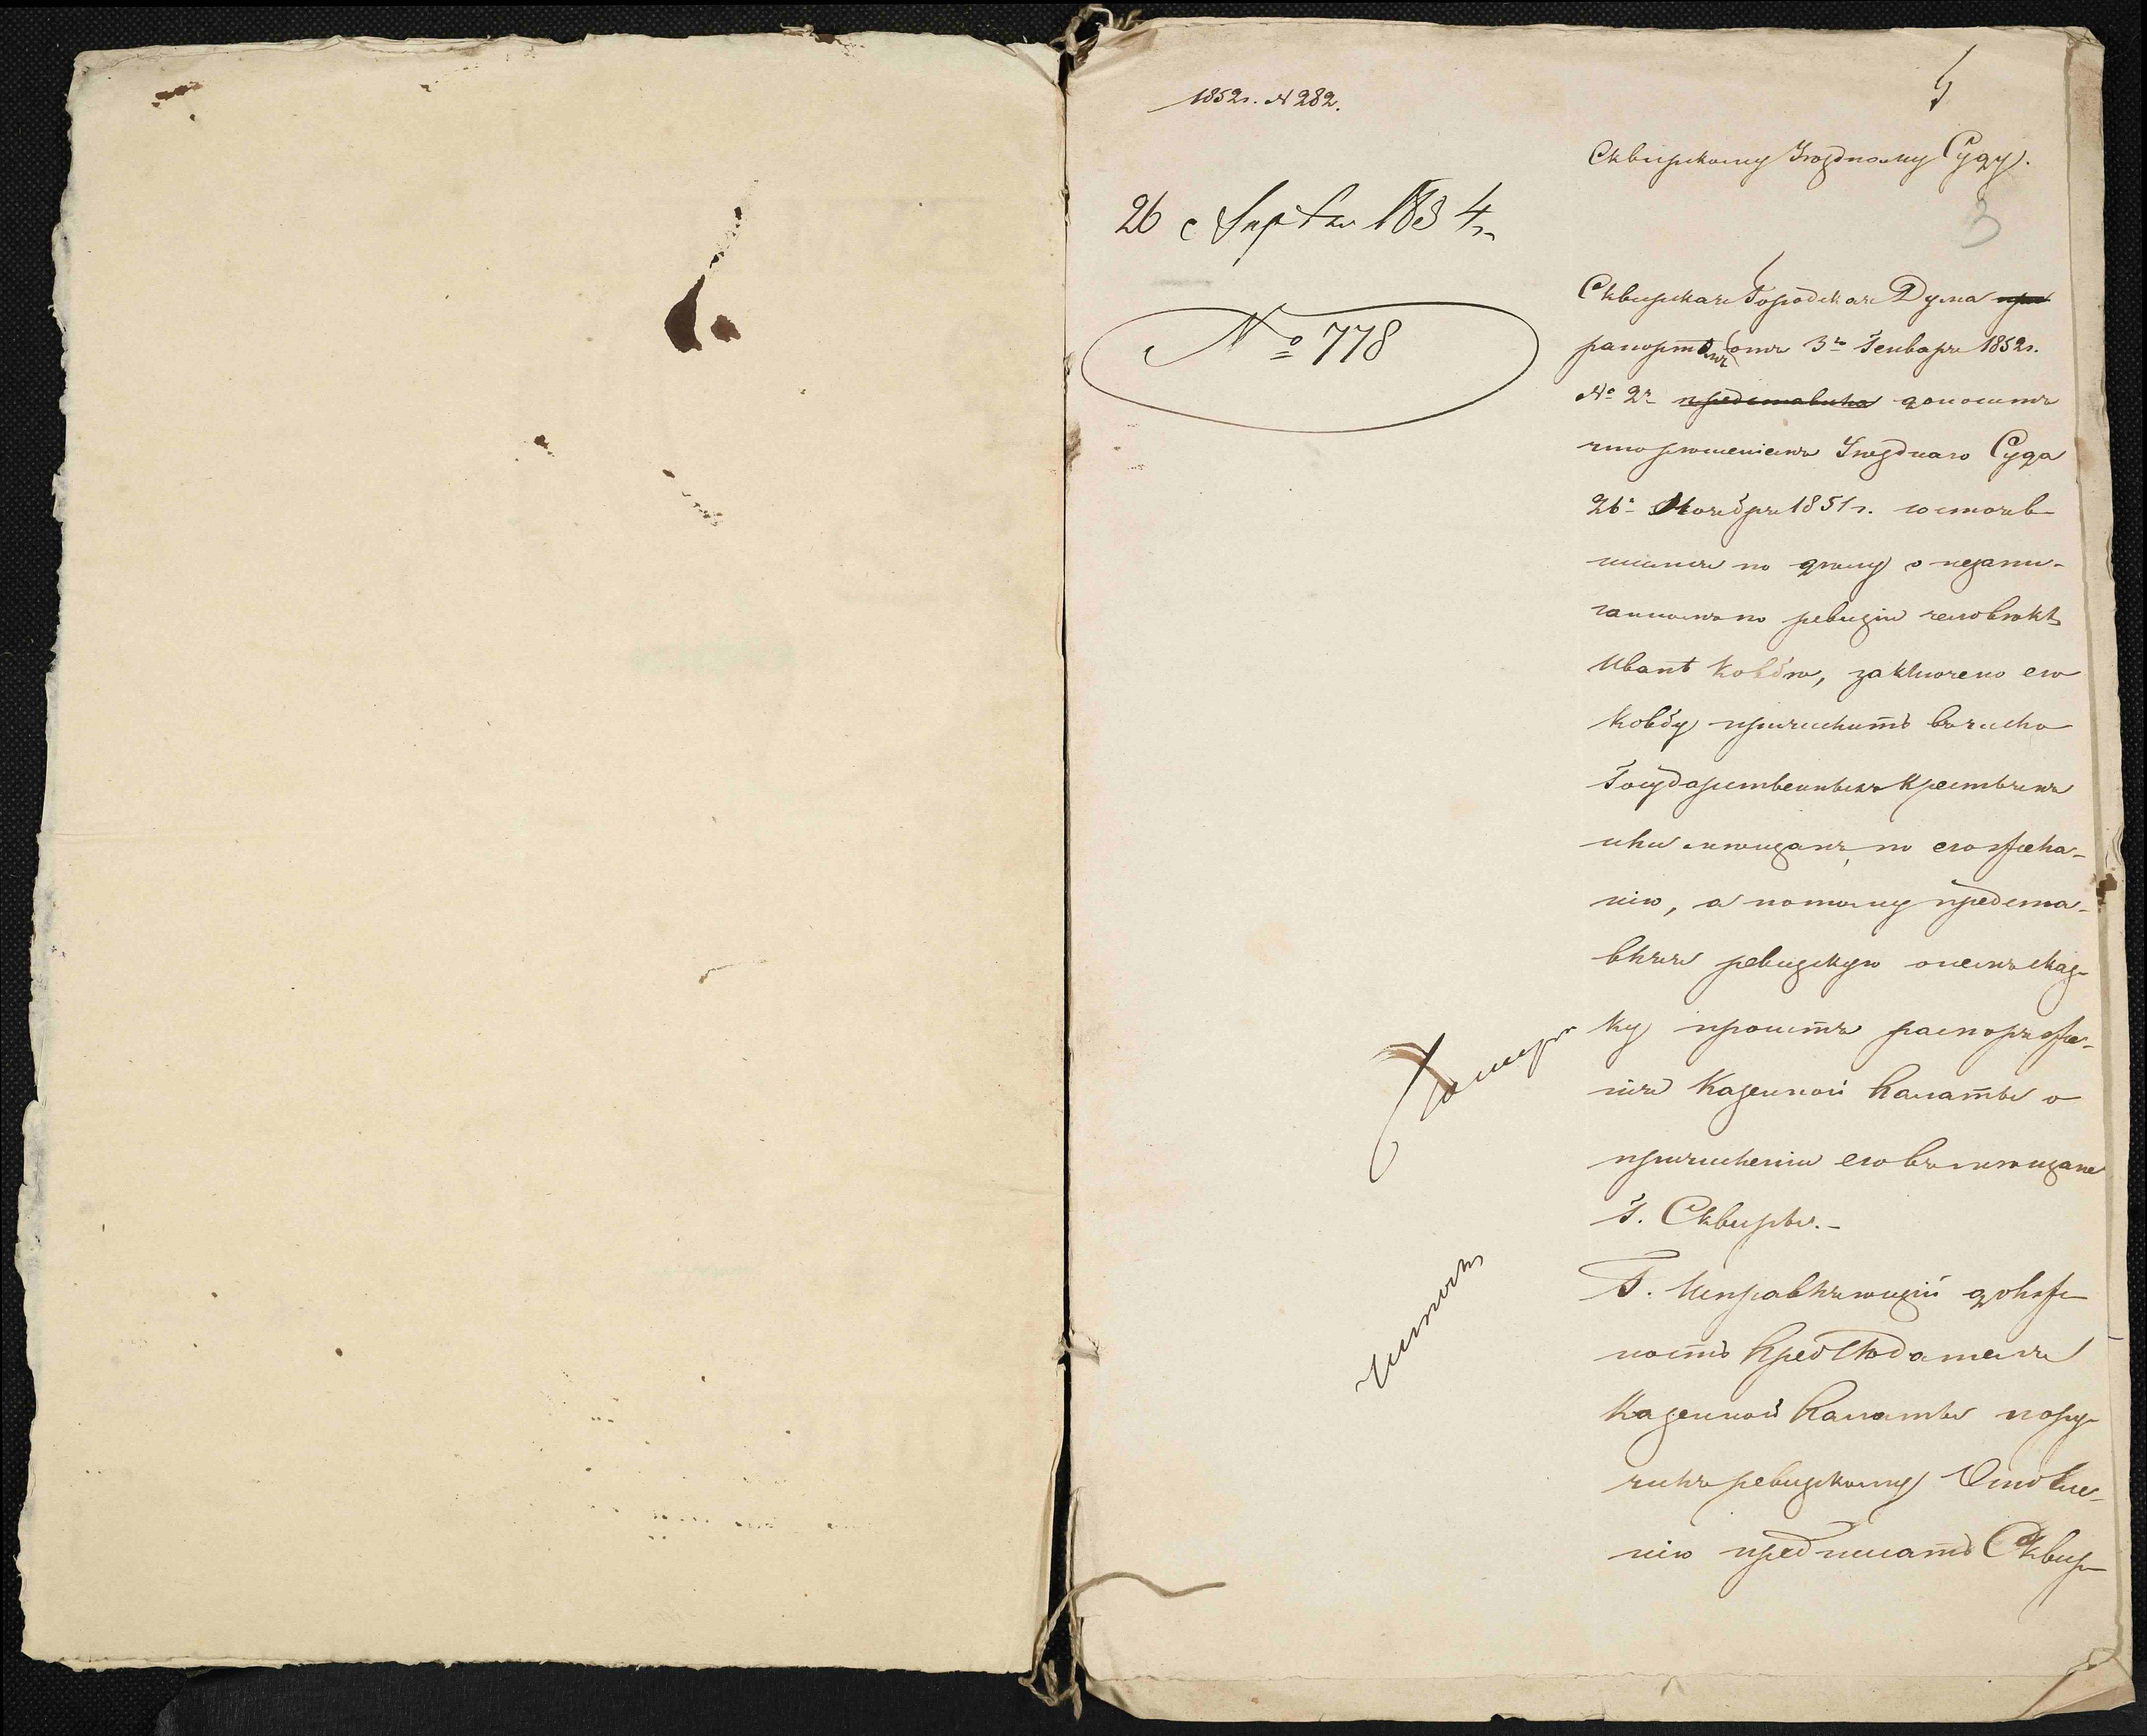 1852г. № 282.
5
Сквирскому Уѣздному Суду.
3
26 Апрѣля 1854г.
№ 778
Сквирская Городская Дума при
рапортомъ отъ 3го Генваря 1852г.
№ 2й представила доноситъ
что рѣшеніемъ Уѣзднаго Суда
26го Ноября 1851г. состояв-
шимся по дѣлу о незапи-
санномъ по ревизіи человѣкѣ
Иванѣ Ковбѣ, заключено его
Ковбу причислить въ число
Государственныхъ Крестьянъ
или мѣщанъ, по его жела-
нію, а потому предста-
вляя ревизскую о немъ сказ-
ку проситъ распоряже-
нія Казенной Палаты о
причисленіи его въ мѣщане
г. Сквиры.-
Г. Исправляющій долж-
ность Предсѣдателя
Казенной Палаты пору-
чилъ ревизскому Отдѣле-
нію предписать Сквир-